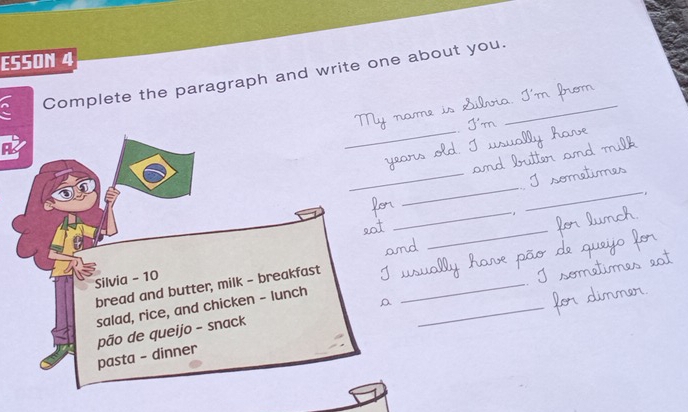 ESSON 4
Complete the paragraph and write one about you.
My name is Silvia. I'm from
. I'm
years old. I usually have
and butter and milk
for . I sometimes
eat , ,
and for lunch.
I usually have pão de queijo for
a . I sometimes eat
for dinner.
Silvia - 10
bread and butter, milk - breakfast
salad, rice, and chicken - lunch
pão de queijo - snack
pasta - dinner